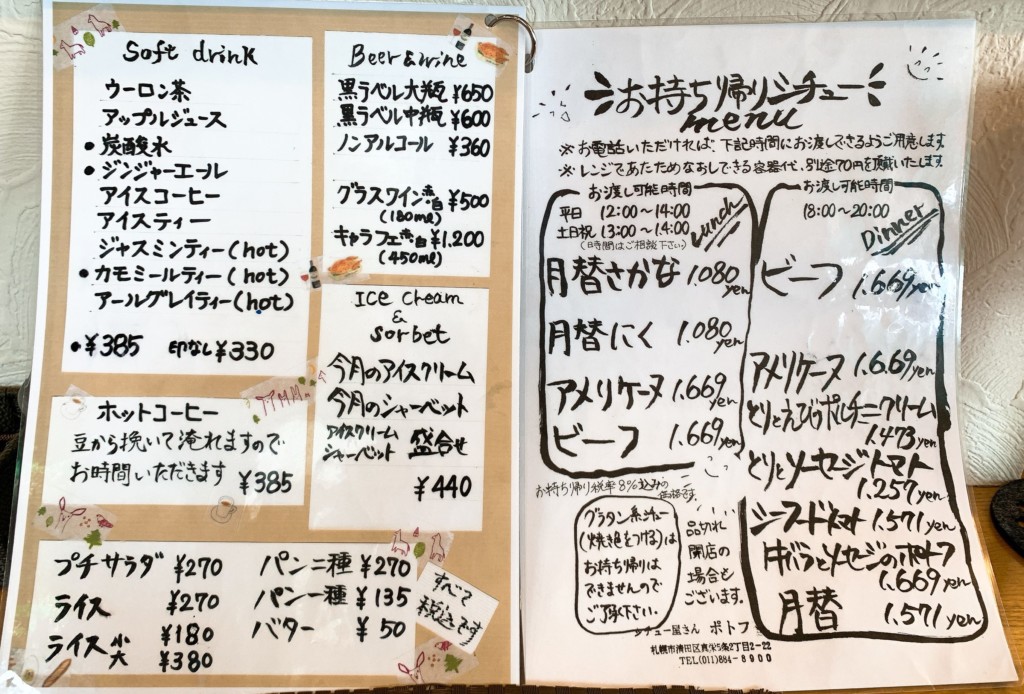 Soft drink
ウーロン茶
アップルジュース
・炭酸水
・ジンジャーエール
アイスコーヒー
アイスティー
ジャスミンティー(hot)
・カモミールティー(hot)
アールグレイティー(hot)
・¥385 印なし¥330
ホットコーヒー
豆から挽いて淹れますので
お時間いただきます ¥385
Beer & wine
黒ラベル大瓶 ¥650
黒ラベル中瓶 ¥600
ノンアルコール ¥360
グラスワイン赤白 ¥500
(180ml)
キャラフェ赤白 ¥1.200
(450ml)
Ice cream
&
sorbet
今月のアイスクリーム
今月のシャーベット
アイスクリーム
シャーベット 盛合せ
¥440
プチサラダ ¥270
ライス ¥270
ライス小 ¥180
大 ¥380
パン二種 ¥270
パン一種 ¥135
バター ¥50
すべて
税込です
お持ち帰りシチュー
menu
※お電話いただければ、下記時間にお渡しできるようご用意します
※レンジであたためなおしできる容器代、別途70円を頂戴いたします
お渡し可能時間
平日 12:00〜14:00
土日祝 13:00〜14:00
(時間はご相談下さい)
Lunch
月替さかな 1.080yen
月替にく 1.080yen
アメリケーヌ 1.669yen
ビーフ 1.669yen
お渡し可能時間
18:00〜20:00
Dinner
ビーフ 1.669yen
アメリケーヌ 1.6.69yen
とりとえびのポルチーニクリーム
1.473yen
とりとソーセージトマト
1.257yen
シーフードトマト 1.571yen
牛バラとソーセージのポトフ
1.669yen
月替 1.571yen
お持ち帰り税率8%込みの
価格です。
グラタン系シチュー
(焼き色をつける)は
お持ち帰りは
できませんので
ご了承下さい。
品切れ
閉店の
場合も
ございます。
シチュー屋さん ポトフ
札幌市清田区真栄5条2丁目2-22
TEL(011)884-8900